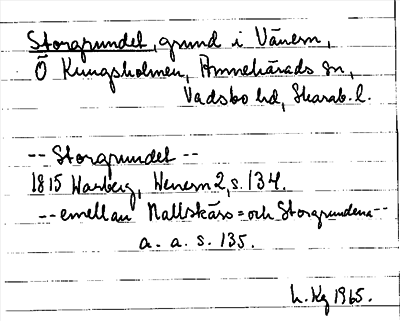 Storgrundet, grund i Vänern,
Ö Kungsholmen, Amnehärads sn,
Vadsbo hd, Skarab. l.
-- Storgrundet --
1815 Warberg, Wenern 2, s. 134.
-- emellan Nallskärs= och Storgrundena --
a. a. s. 135.
L. Kg 1965.